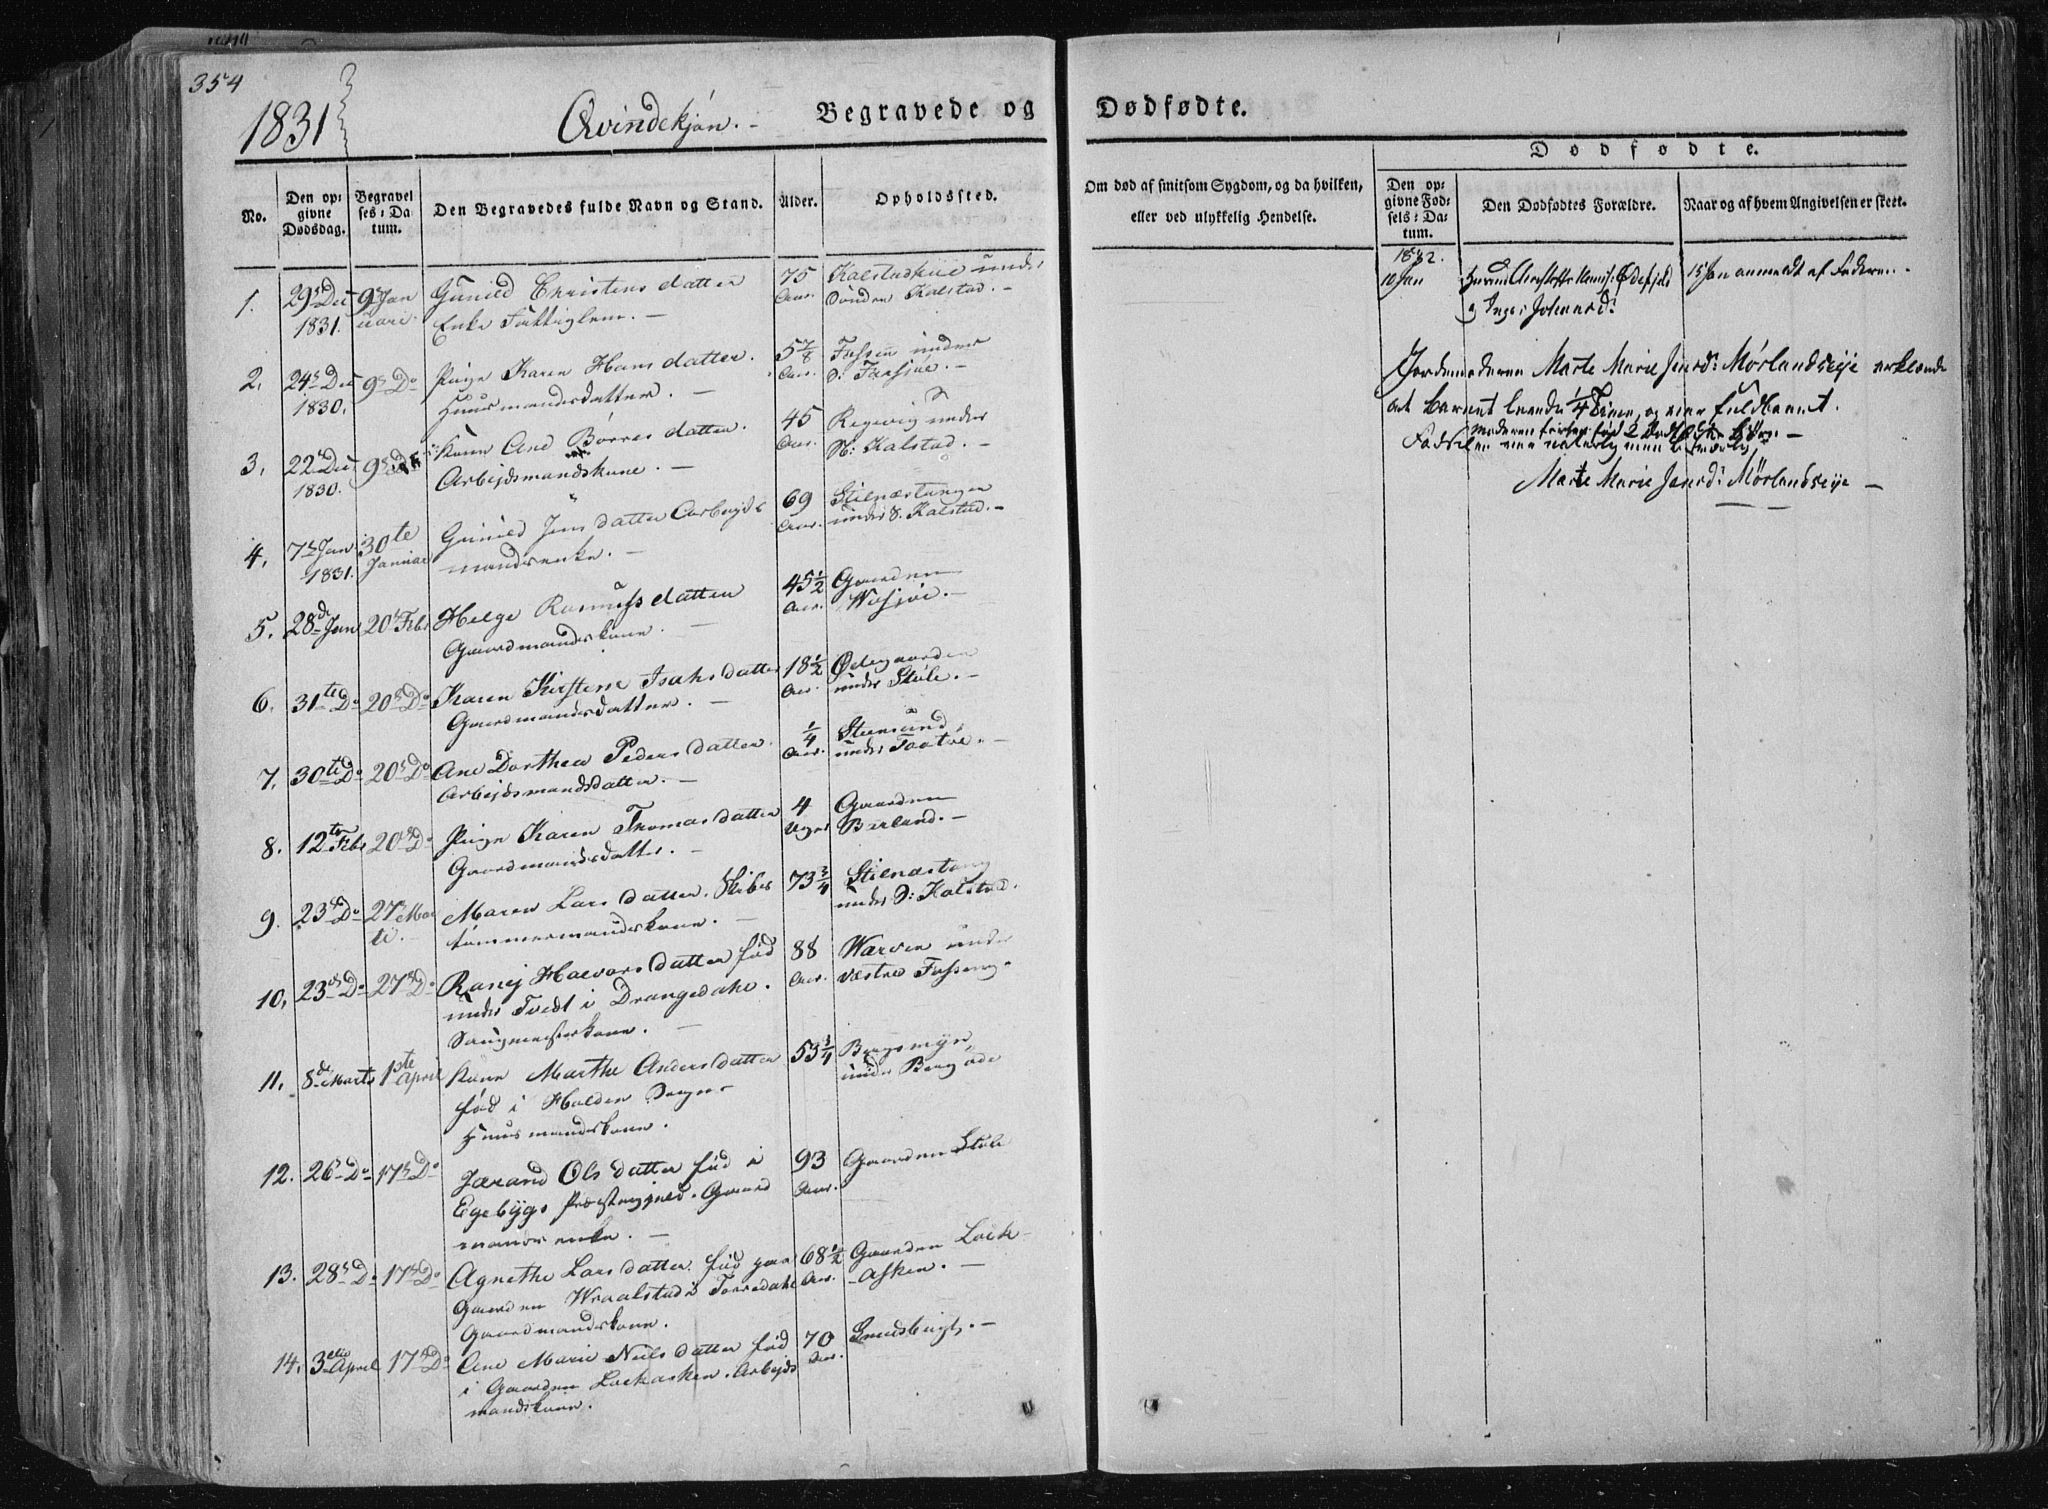 354
1831
Qvindekjøn. -
Begravede og
Dødfødte.
No.
Den op-
givne
Dødsdag.
Begravel
ses-Da-
tum.
Den Begravedes fulde Navn og Stand.
Alder.
Opholdssted.
1.
29de Dec
1831.
9de Jan
uari.
Gunild Christensdatter
Enke Fattiglem. -
75
Aar.
Kalstadkile under
Søndre Kalstad. -
2.
24de Dec
1830.
9de Do
Pige Karen Hansdatter.
Huusmandsdatter. -
5 7/8
Aar.
under
. -
3.
22de Dec
1830.
9de Do
Kone Ane Børresdatter.
Arbejdsmandskone. -
45
Aar.
under
N: Kalstad. -
4.
7de Jan
1831.
30te
Januar
Gunild Jensdatter Arbejds
mandsenke. -
69
Aar.
Stilnæstangen
under S. Kalstad. -
5.
28de Jan
20de Feb
Helge Rasmusdatter
Gaardmandskone. -
45 1/2
Aar.
Gaarden
. -
6.
31te Do
20de Do
Karen Kirstine Isaksdatter
Gaardmandsdatter. -
18 1/2
Aar.
Ødegaarden
under Støle. -
7.
30te Do
20de Do
Ane Dorthea Pedersdatter.
Arbejdsmandsdatter. -
1/4
Aar.
Steensund
under Taatøe. -
8.
12te Feb
20de Do
Pige Karen Thomasdatter
Gaardmandsdatter. -
4
Uger
Gaarden
Bærland. -
9.
23de Do
27de Mar
ti. -
Maren Larsdatter. Skibs
tømmermandskone. -
73 3/4
Stilnæstang
under S: Kalstad.
10.
23de Do
27de Do
Ranej Halvorsdatter fød
under Tvedt i Drangedahl.
Saugmesterkone. -
88
Aar.
Warven under
Vestre Fossing.
11.
8de Marts
1ste
April
Kone Marthe Andersdatter
fød i Holden Sogn
Huusmandskone.
53 3/4
Bergsmyr,
under Berg øde
12.
26de Do
17de Do
Jørand Olsdatter fød i
Egebygs Præstegjeld. Gaard
mandsenke. -
93
Aar.
Gaarden Støle
13.
28de Do
17de Do
Agnethe Larsdatter fød paa
Gaarden Wraalstad i Torredahl
Gaardmandskone.
68 1/2
Aar.
Gaarden Lock-
-asken. -
14.
3die April
17de Do
Ane Marie Nielsdatter fød
i Gaarden Lockasken. Arbejds
mandskone.
70
Aar.
. -
Om død af smitsom Sygdom, og da hvilken,
eller ved ulykkelig Hendelse.
Dødfødte.
Den op-
givne Fød-
sels-Da-
tum.
Den Dødfødtes Forældre.
Naar og af hvem Angivelsen er skeet.
1832.
10 Jan
& Inger Johannesd:
15 Jan anmeldt af Faderen. -
Jordemoderen Marte Marie Jensd: Mørlandseje erklærede
at Barnet levede 1/4 Time, og var fuldbaaret.
Moderen forhen fød 2 Børn -
Fødselen var naturlig men
Marte Marie Jensd: Mørlandseje -